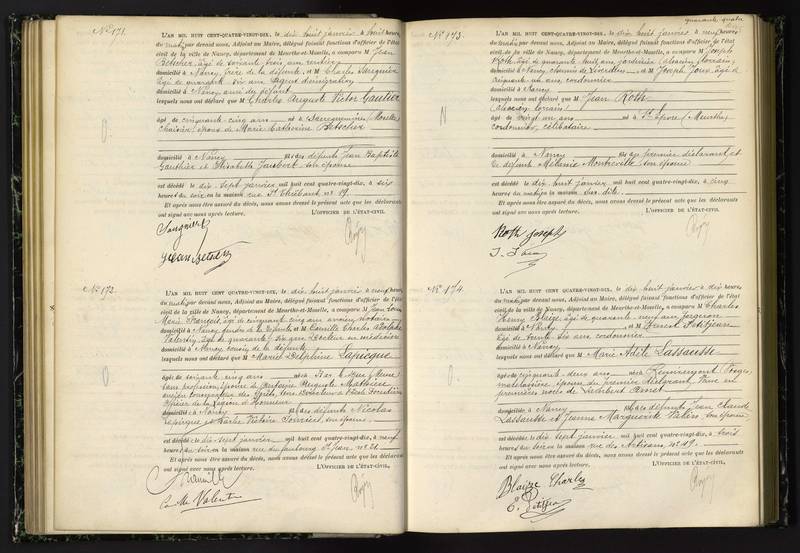 quarante quatre
N° 171.
L'AN MIL HUIT CENT QUATRE-VINGT-DIX, le dix huit janvier à huit heures
du matin par devant nous, Adjoint au Maire, délégué faisant fonctions d'officier de l'état
civil de la ville de Nancy, département de Meurthe-et-Moselle, a comparu M Jean
Betscher, âgé de soixante trois ans rentier
domicilié à Nancy, frère de la défunte, et M Charles
âgé de quarante six ans agent d'émigration
domicilié à Nancy ami du défunt
lesquels nous ont déclaré que M Charles Auguste Victor Gautier
âgé de cinquante cinq ans né à Sarreguemines (Moselle)
époux de Marie Catherine Betscher
domicilié à Nancy fils des défunts Jean Baptiste
Gauthier et Elisabeth Jaubert son épouse
est décédé le dix sept janvier mil huit cent quatre-vingt-dix, à dix
heures du soir en la maison rue St Thiébaut n° 19.
Et après nous être assuré du décès, nous avons dressé le présent acte que les déclarants
ont signé avec nous après lecture. L'OFFICIER DE L'ÉTAT-CIVIL
N° 172.
L'AN MIL HUIT CENT QUATRE-VINGT-DIX, le dix huit janvier à neuf heures
du matin par devant nous, Adjoint au Maire, délégué faisant fonctions d'officier de l'état
civil de la ville de Nancy, département de Meurthe-et-Moselle, a comparu M Jean Louis
Marie François, âgé de cinquante cinq ans ancien notaire
domicilié à Nancy gendre de la défunte et M Camille Charles Adolphe
Valentin, âgé de quarante six ans Docteur en médecine
domicilié à Nancy cousin de la défunte
lesquels nous ont déclaré que M Marie Delphine Lapicque
âgée de soixante cinq ans née à Bar le Duc (Meuse)
sans profession, épouse de Antoine Auguste Mathieu
ancien conservateur des forêts, sous Directeur de l'école forestière
Officier de la Légion d'Honneur
domiciliée à Nancy fille des défunts Nicolas
Lapicque et Barbe Victoire son épouse
est décédée le dix sept janvier mil huit cent quatre-vingt-dix, à neuf
heures du soir en la maison rue du faubourg St Jean n° 21.
Et après nous être assuré du décès, nous avons dressé le présent acte que les déclarants
ont signé avec nous après lecture. L'OFFICIER DE L'ÉTAT-CIVIL,
N° 173.
L'AN MIL HUIT CENT QUATRE-VINGT-DIX, le dix huit janvier à neuf heures
du matin par devant nous, Adjoint au Maire, délégué faisant fonctions d'officier de l'état
civil de la ville de Nancy, département de Meurthe-et-Moselle, a comparu M Joseph
Roth, âgé de quarante huit ans, jardinier (alsacien lorrain)
domicilié à Nancy, et M Joseph Joux, âgé de
cinquante un ans, cordonnier
domicilié à Nancy
lesquels nous ont déclaré que M Jean Roth
(alsacien lorrain)
âgé de vingt un ans né à St Epvre (Meurthe)
cordonnier, célibataire
domicilié à Nancy fils du premier déclarant, et
de défunte Mélanie Montreville, son épouse
est décédé le dix huit janvier mil huit cent quatre-vingt-dix, à cinq
heures du matin en la maison sus dite.
Et après nous être assuré du décès, nous avons dressé le présent acte que les déclarants
ont signé avec nous après lecture. L'OFFICIER DE L'ÉTAT-CIVIL,
Roth Joseph
N° 174.
L'AN MIL HUIT CENT QUATRE-VINGT-DIX, le dix huit janvier à dix heures
du matin par devant nous, Adjoint au Maire, délégué faisant fonctions d'officier de l'état
civil de la ville de Nancy, département de Meurthe-et-Moselle, a comparu M Charles
Henry Blaize âgé de quarante neuf ans
domicilié à Nancy, et M Ernest Petitjean
âgé de trente six ans cordonnier
domicilié à Nancy
lesquels nous ont déclaré que M Marie Adèle Lassausse
âgée de cinquante deux ans née à Remiremont Vosges,
matelassière, épouse du premier déclarant, veuve en
premières noces de
domiciliée à Nancy fille des défunts Jean Claude
Lassausse et Jeanne Marguerite son épouse
est décédée le dix sept janvier mil huit cent quatre-vingt-dix, à trois
heures du soir en la maison rue des Artisans n° 49.
Et après nous être assuré du décès, nous avons dressé le présent acte que les déclarants
ont signé avec nous après lecture. L'OFFICIER DE L'ÉTAT-CIVIL,
Blaize Charles
E. Petitjean